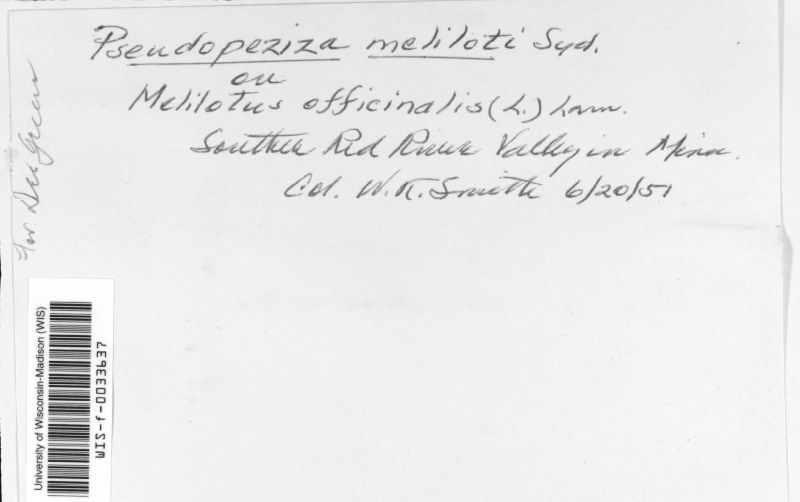 Pseudopeziza meliloti Syd.
on
Melilotus officinalis (L.) Lam.
Southern Red River Valley in Minn.
Col. W.K. Smith 6/20/51
For Dr. Green
University of Wisconsin-Madison (WIS)
WIS-f-0033637